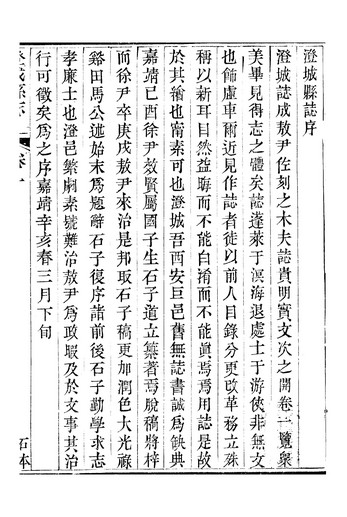 澄城縣誌序
澄城誌成敖尹佐刻之木夫誌貴明實文次之開卷一覽衆
美畢見得志之體矣誌蓬萊于溟海退處士于游俠非無文
也飾虛車爾近見作誌者徒以前人目錄分更改革務立殊
稱以新耳目然益聯而不能白褙而不能眞焉焉用誌是故
於其繪也甯素可也澄城吾西安巨邑舊無誌書誠爲缺典
嘉靖己酉徐尹效賢屬國子生石子道立纂著焉脫稿將梓
而徐尹卒庚戌敖尹來治是邦取石子稿更加潤色大光祿
谿田馬公述始末爲題辭石子復序諸前後石子勤學求志
孝廉士也澄邑繁劇素號難治敖尹爲政暇及於文事其治
行可徵矣爲之序嘉靖辛亥春三月下旬
澄城縣志
卷一
石本